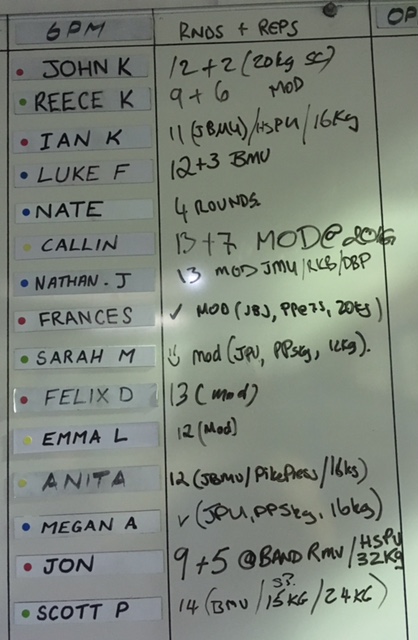 6PM RNDS + REPS OP
JOHN K 12+2 (20kg SC)
REECE K 9+6 MOD
IAN K 11 (JBMU)/HSPU/16Kg
LUKE F 12+3 BMU
NATE 4 ROUNDS
CALLIN 13+7 MOD@20KG
NATHAN.J 13 MOD JMU/RKB/DBP
FRANCES ✓ MOD (JBJ, PPe7.5, 20kg)
SARAH M mod (JPU, PP5kg, 12kg).
FELIX D 13 (mod)
EMMA L 12 (Mod)
ANITA 12 (JBMU/PikePress/16kg)
MEGAN A ✓ (JPU, PP5kg, 16kg)
JON 9+5 @BAND RMU/HSPU 32KG
SCOTT P 14 (BMU/15KG/24KG)